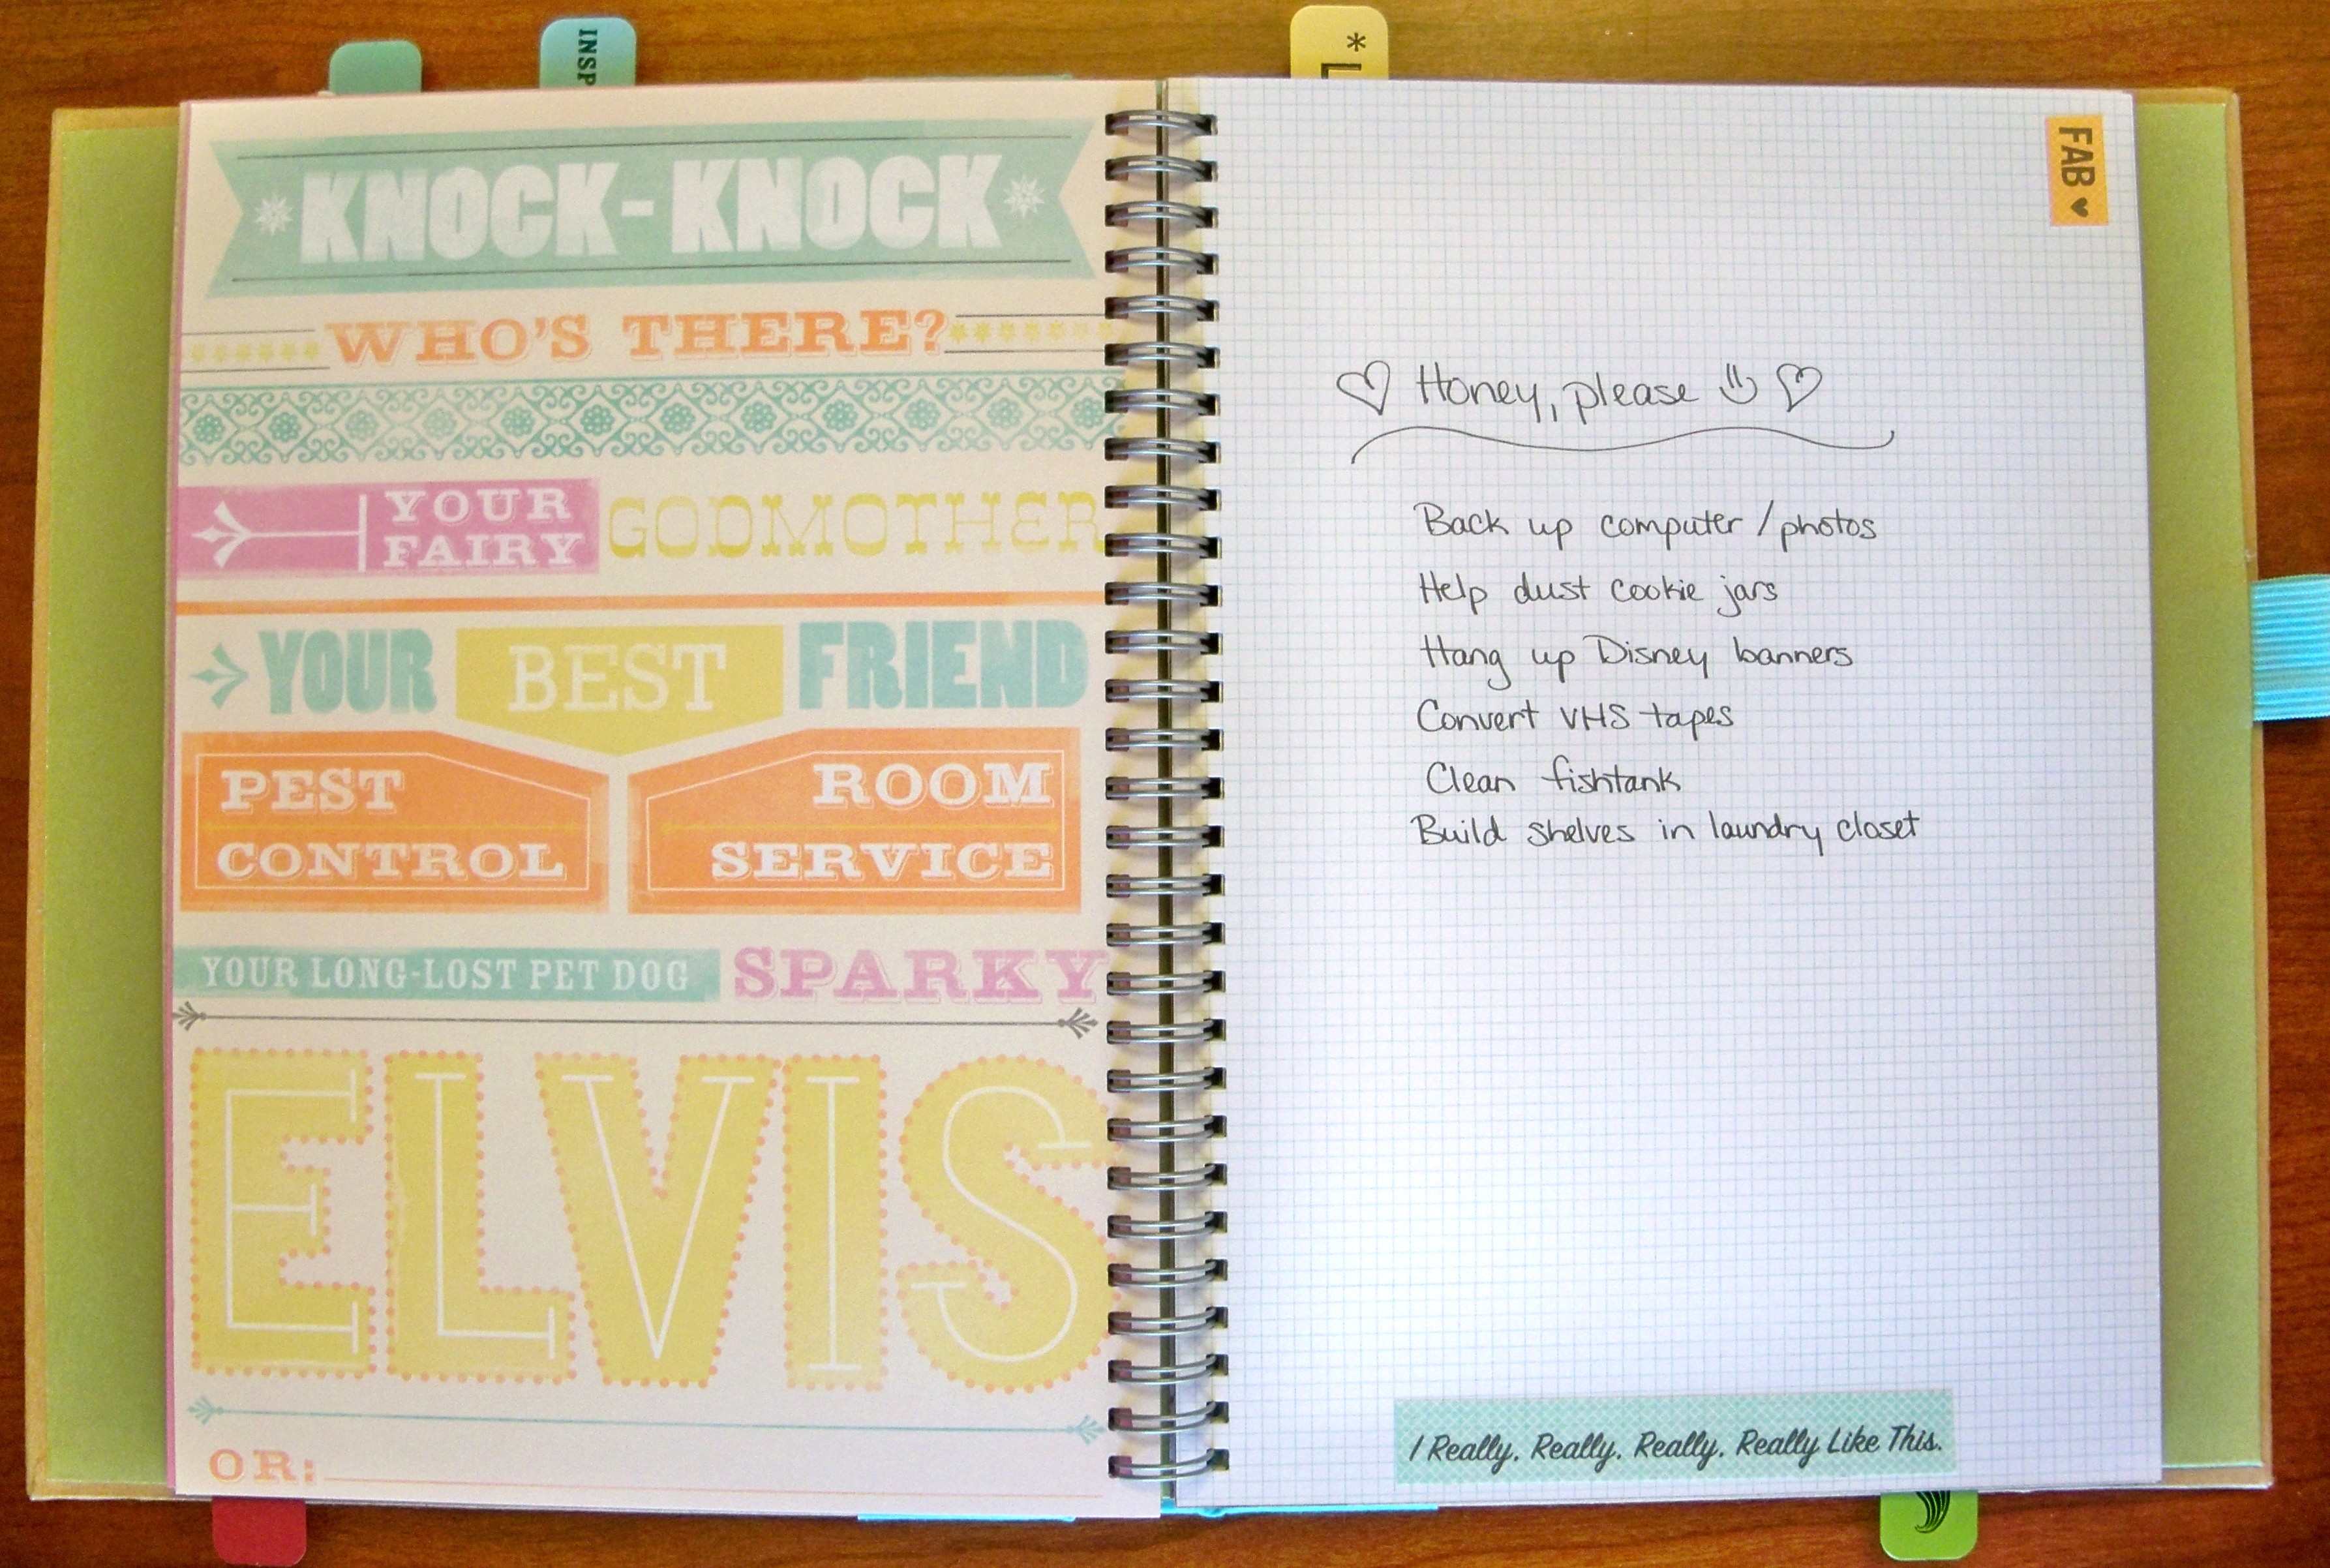 INSP
*L
KNOCK-KNOCK
WHO'S THERE?
YOUR
FAIRY
GODMOTHER
YOUR BEST FRIEND
PEST
CONTROL
ROOM
SERVICE
YOUR LONG-LOST PET DOG SPARKY
ELVIS
OR:
FAB
Honey, please
Back up computer/photos
Help dust cookie jars
Hang up Disney banners
Convert VHS tapes
Clean fishtank
Build shelves in laundry closet
I Really. Really. Really. Really Like This.